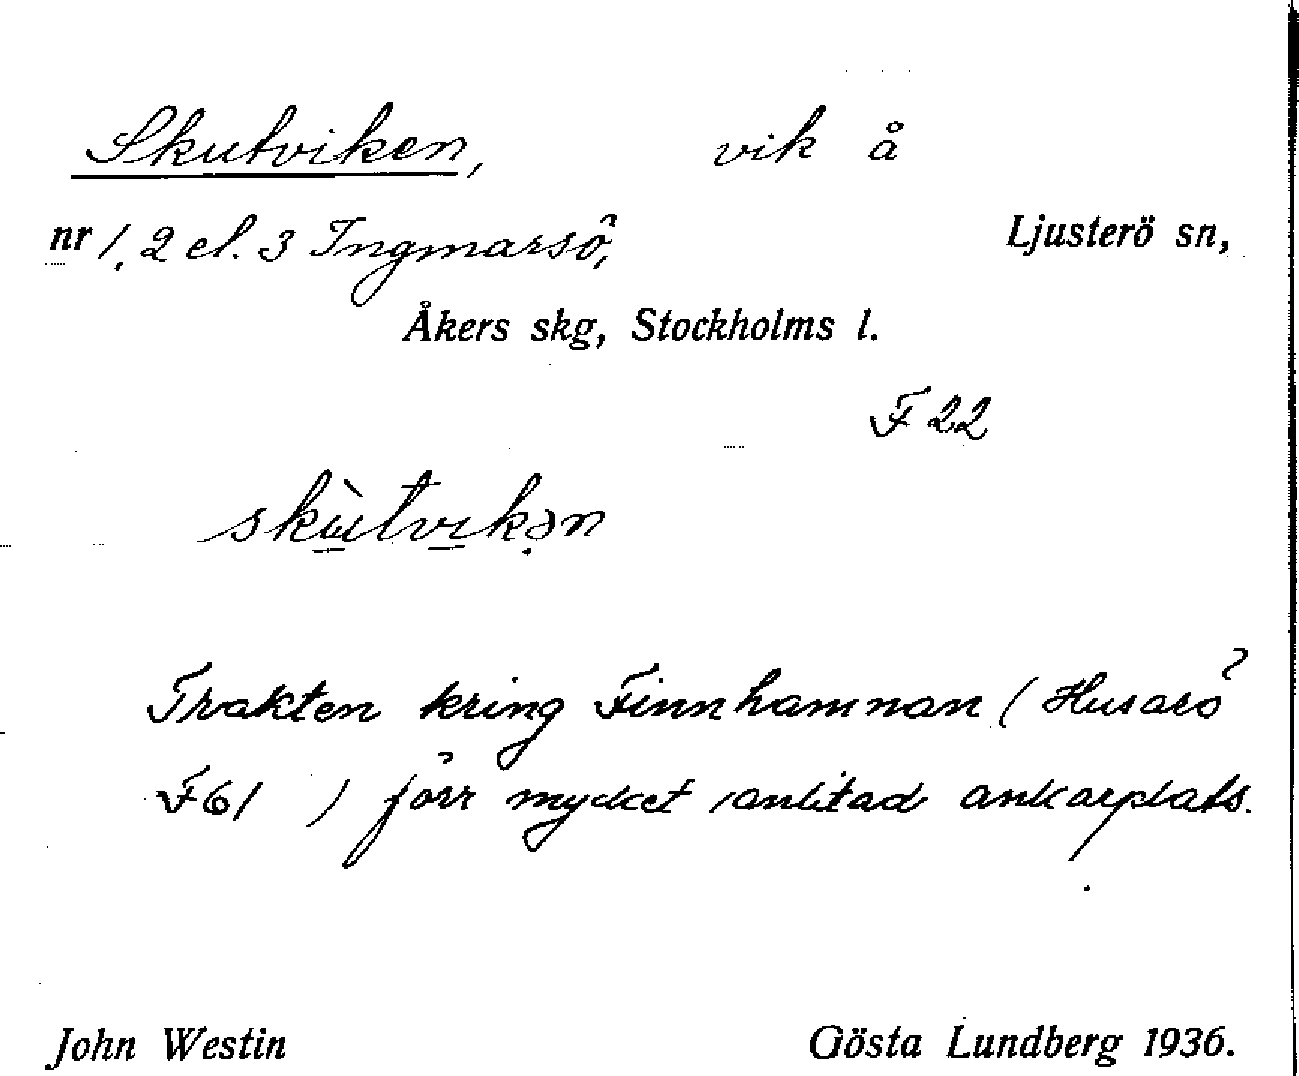 Skutviken, vik å
nr 1, 2 el. 3 Ingmarsö, Ljusterö sn,
Åkers skg, Stockholms l.
F 22
skùtvikən
Trakten kring Finnhamnan (Husarö
F61 ) förr mycket anlitad ankarplats.
John Westin Gösta Lundberg 1936.